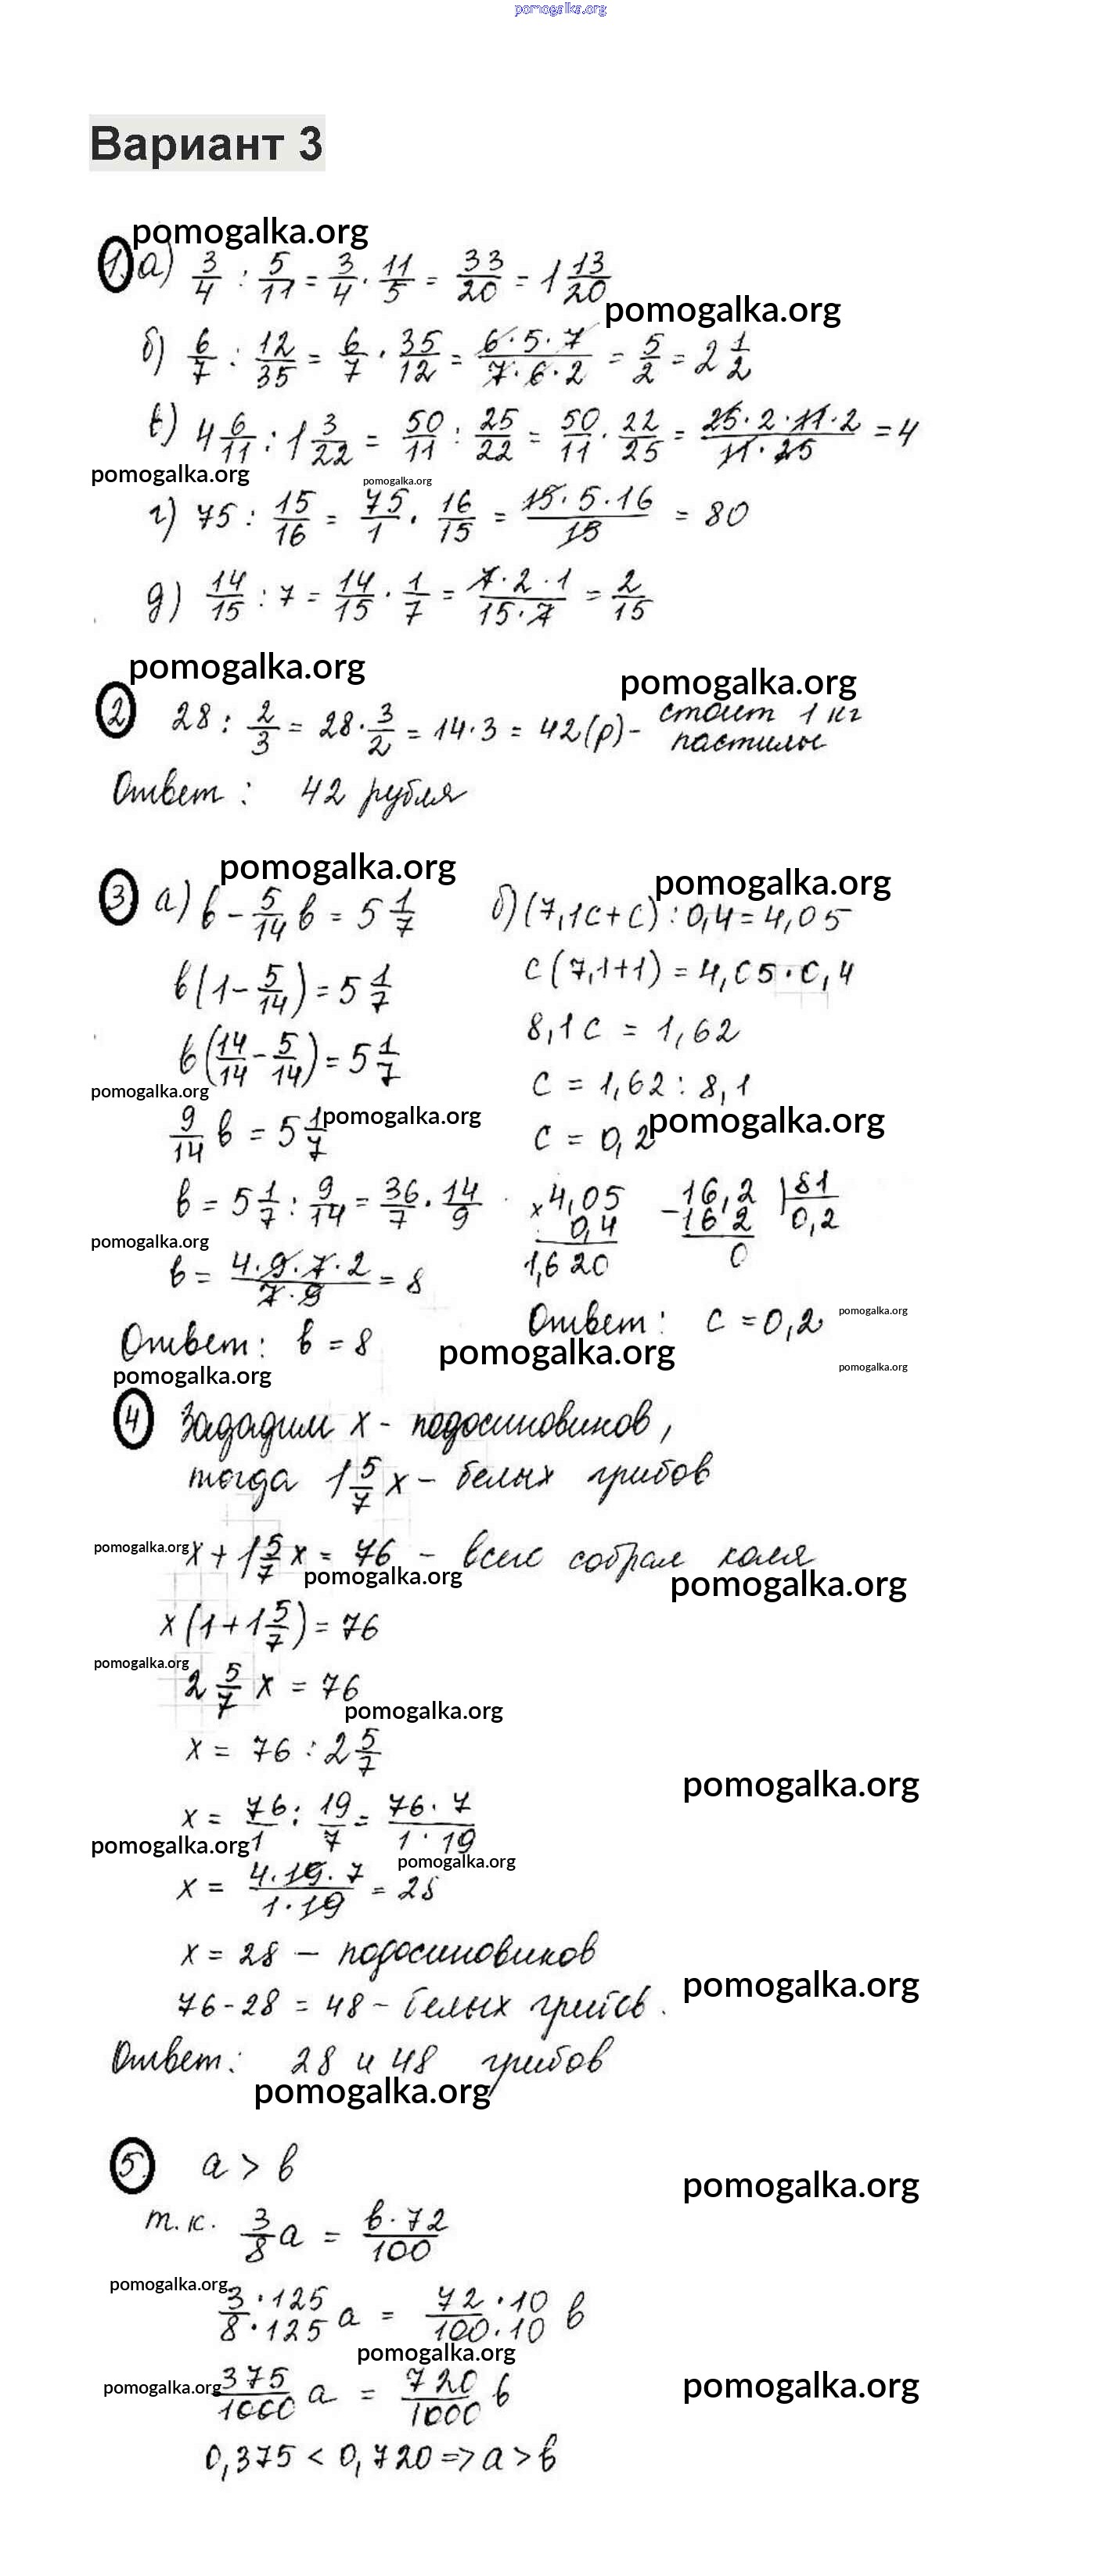 pomogalka.org
Вариант 3
pomogalka.org
1. а) 3/4 : 5/11 = 3/4 · 11/5 = 33/20 = 1 13/20
pomogalka.org
б) 6/7 : 12/35 = 6/7 · 35/12 = 6·5·7/7·6·2 = 5/2 = 2 1/2
в) 4 6/11 : 1 3/22 = 50/11 : 25/22 = 50/11 · 22/25 = 25·2·11·2/11·25 = 4
pomogalka.org pomogalka.org
г) 75 : 15/16 = 75/1 · 16/15 = 15·5·16/15 = 80
д) 14/15 : 7 = 14/15 · 1/7 = 7·2·1/15·7 = 2/15
pomogalka.org pomogalka.org
2 28 : 2/3 = 28 · 3/2 = 14·3 = 42(р) - стоит 1 кг
пастилы
Ответ : 42 рубля
pomogalka.org pomogalka.org
3 а) b - 5/14 b = 5 1/7
b(1 - 5/14) = 5 1/7
b(14/14 - 5/14) = 5 1/7
pomogalka.org
9/14 b = 5 1/7
pomogalka.org
b = 5 1/7 : 9/14 = 36/7 · 14/9
pomogalka.org
b = 4·9·7·2/7·9 = 8
Ответ: b = 8
б) (7,1c+c) : 0,4 = 4,05
c(7,1+1) = 4,05·0,4
8,1c = 1,62
c = 1,62 : 8,1
pomogalka.org
c = 0,2
×4,05 -16,2 81
0,4 16 2 0,2
1,620 0
Ответ: c = 0,2
pomogalka.org
pomogalka.org pomogalka.org
pomogalka.org
4 Зададим x - подосиновиков,
тогда 1 5/7 x - белых грибов
pomogalka.org
x + 1 5/7 x = 76 - всего собрал Коля
pomogalka.org pomogalka.org
x(1 + 1 5/7) = 76
pomogalka.org
2 5/7 x = 76
pomogalka.org
x = 76 : 2 5/7
pomogalka.org
x = 76/1 : 19/7 = 76·7/1·19
pomogalka.org pomogalka.org
x = 4·19·7/1·19 = 28
x = 28 - подосиновиков
pomogalka.org
76 - 28 = 48 - белых грибов.
Ответ: 28 и 48 грибов
pomogalka.org
5. a > b
pomogalka.org
т.к. 3/8 a = b·72/100
pomogalka.org
3·125/8·125 a = 72·10/100·10 b
pomogalka.org
pomogalka.org pomogalka.org
375/1000 a = 720/1000 b
0,375 < 0,720 => a > b